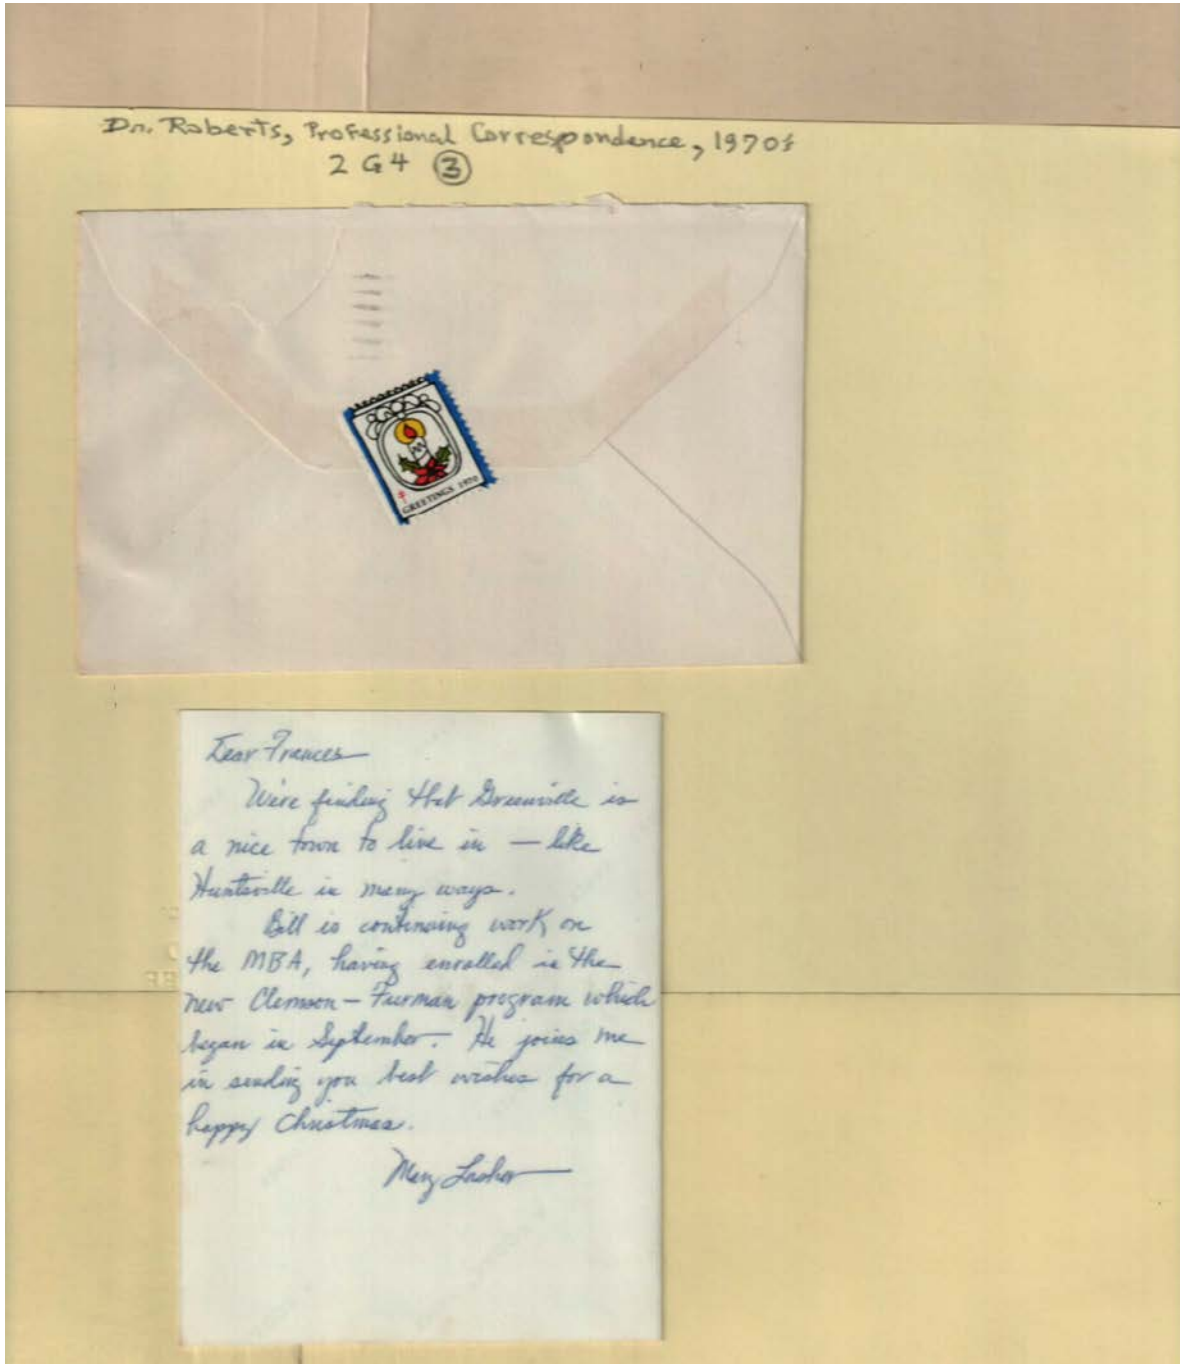 Dr. Roberts, Professional Correspondence, 1970s
2 G 4 ③
GREETINGS 1970
Dear Frances
We're finding that Greenville is
a nice town to live in — like
Huntsville in many ways.
Bill is continuing work on
the MBA, having enrolled in the
new Clemson – Furman program which
began in September. He joins me
in sending you best wishes for a
happy Christmas.
Mary Lasher